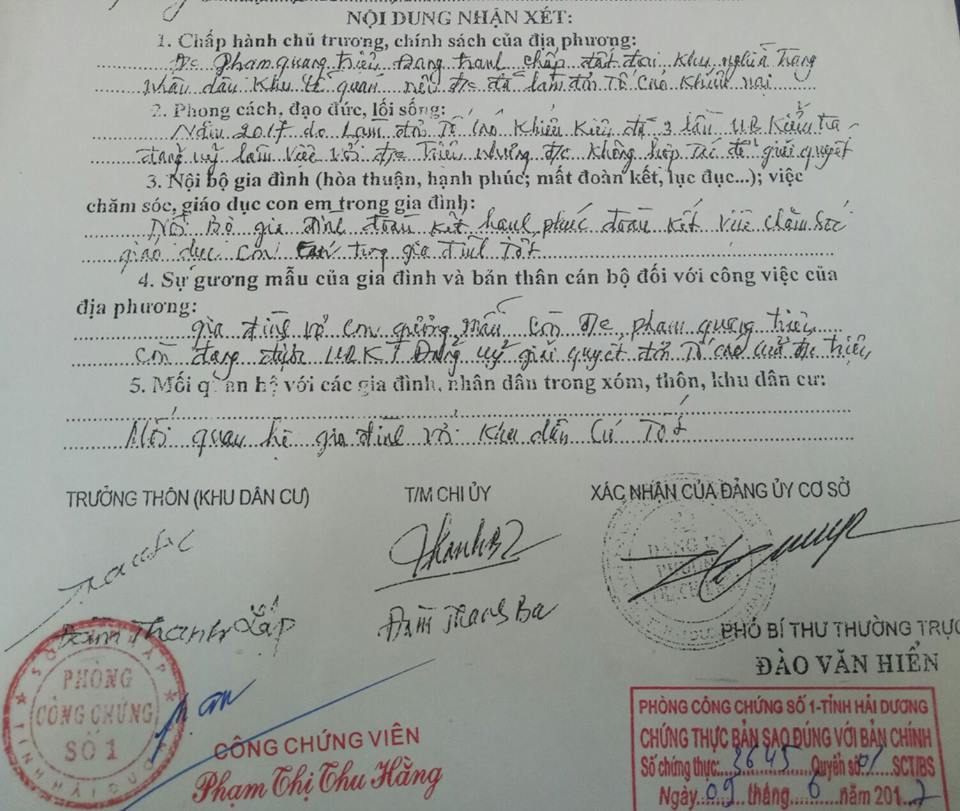 NỘI DUNG NHẬN XÉT:
1. Chấp hành chủ trương, chính sách của địa phương:
Đ/c Phạm quang Triều Đang tranh chấp đất đai Khu nghĩa Trang
nhân dân Khu đã làm đơn Tố cáo Khiếu nại
2. Phong cách, đạo đức, lối sống:
Năm 2017 do Làm đơn Tố cáo Khiếu Kiện đã 3 lần UB Kiểm tra
đảng uỷ làm việc với đ/c Triều nhưng đ/c không hợp tác để giải quyết
3. Nội bộ gia đình (hòa thuận, hạnh phúc; mất đoàn kết, lục đục...); việc
chăm sóc, giáo dục con em trong gia đình:
Nội Bộ gia đình đoàn kết hạnh phúc đoàn kết việc chăm sóc
giáo dục con trong gia đình Tốt
4. Sự gương mẫu của gia đình và bản thân cán bộ đối với công việc của
địa phương:
gia đình vợ con gương mẫu Còn đ/c phạm quang triều
còn đang được UBKT Đảng uỷ giải quyết đơn Tố cáo của đ/c triều
5. Mối quan hệ với các gia đình, nhân dân trong xóm, thôn, khu dân cư:
Mối quan hệ gia đình với Khu dân Cư Tốt
TRƯỞNG THÔN (KHU DÂN CƯ) T/M CHI ỦY XÁC NHẬN CỦA ĐẢNG ỦY CƠ SỞ
ĐẢNG ỦY
PHƯỜNG
Đàm Thanh Lắp Đàm Thanh Ba
PHÓ BÍ THƯ THƯỜNG TRỰ
ĐÀO VĂN HIỂN
PHÒNG
CÔNG CHỨNG
SỐ 1
TỈNH HẢI DƯƠNG
CÔNG CHỨNG VIÊN
Phạm Thị Thu Hằng
PHÒNG CÔNG CHỨNG SỐ 1-TỈNH HẢI DƯƠNG
CHỨNG THỰC BẢN SAO ĐÚNG VỚI BẢN CHÍNH
Số chứng thực: 3645 Quyển số 01 SCT/BS
Ngày 09 tháng 6 năm 2017